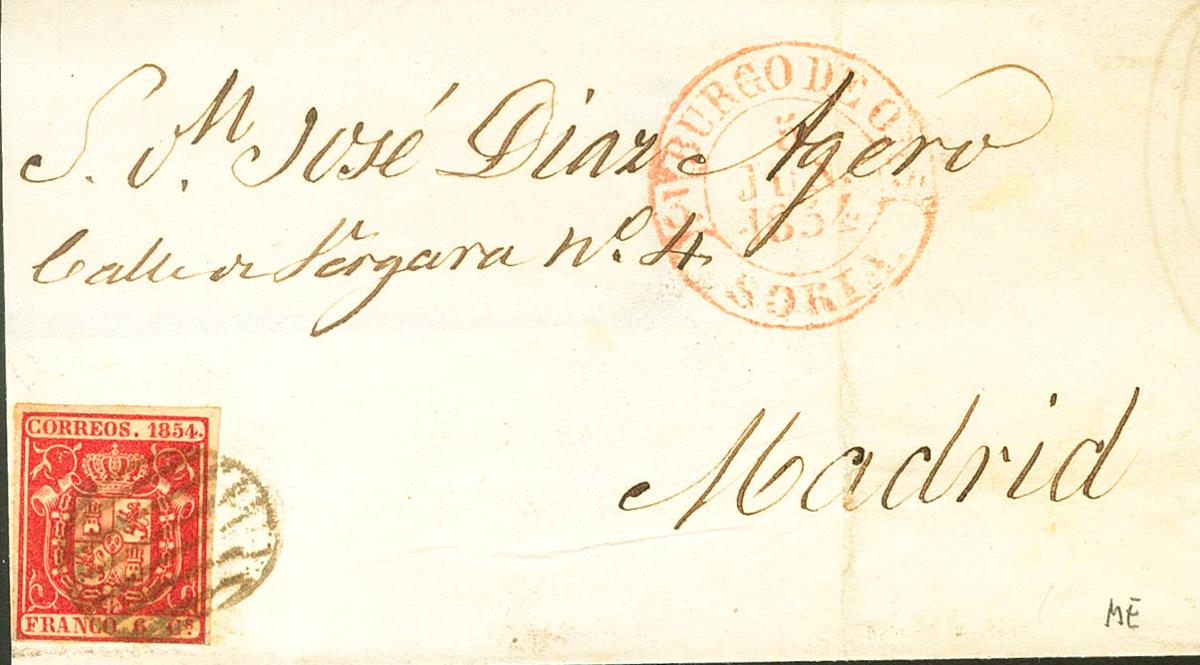 S. D. José Diaz Agero
Calle de Vergara Nº. 4.
Madrid
BURGO DE O
5
JUN.
1854
SORIA
CORREOS. 1854.
FRANCO. 6. Cs.
ME